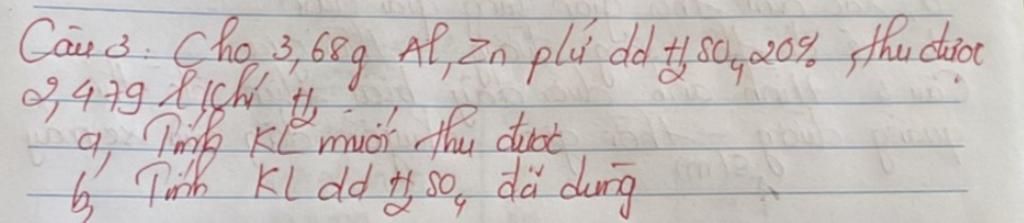 Câu 3. Cho 3,68g Al, Zn p/ứ dd H2SO4 20%, thu được
2,479 l khí H2
a, Tính KL muối thu được
b, Tính KL dd H2SO4 đã dùng